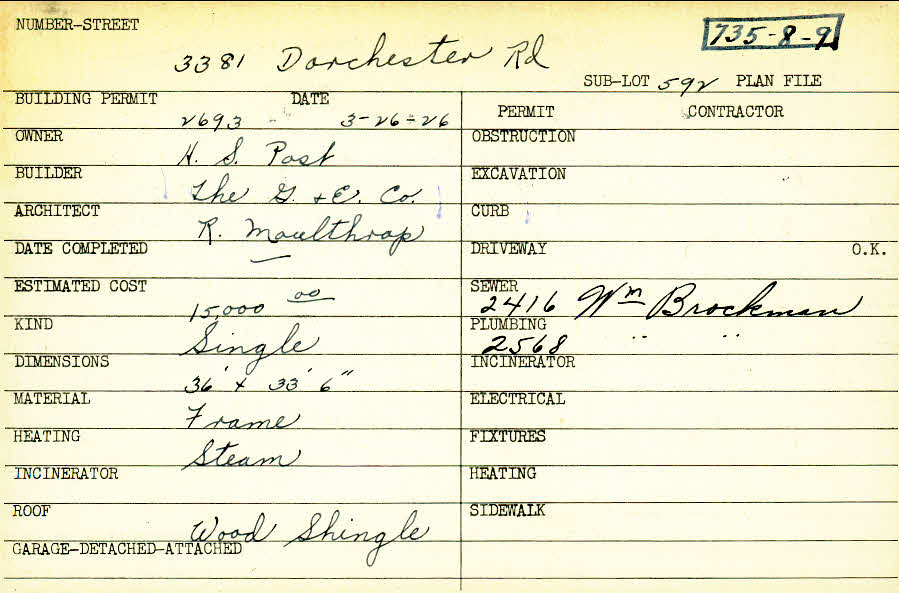 NUMBER-STREET
735-8-9
3381 Dorchester Rd
SUB-LOT 592 PLAN FILE
BUILDING PERMIT DATE
2693 3-26-26
OWNER
H. S. Post
BUILDER
The G. & E. Co.
ARCHITECT
R. Moulthrop
DATE COMPLETED
—
ESTIMATED COST
15,000 00
KIND
Single
DIMENSIONS
36' x 33' 6"
MATERIAL
Frame
HEATING
Steam
INCINERATOR
ROOF
Wood Shingle
GARAGE-DETACHED-ATTACHED
PERMIT CONTRACTOR
OBSTRUCTION
EXCAVATION
CURB
DRIVEWAY O.K.
SEWER
2416 Wm Brockman
PLUMBING
2568 " "
INCINERATOR
ELECTRICAL
FIXTURES
HEATING
SIDEWALK